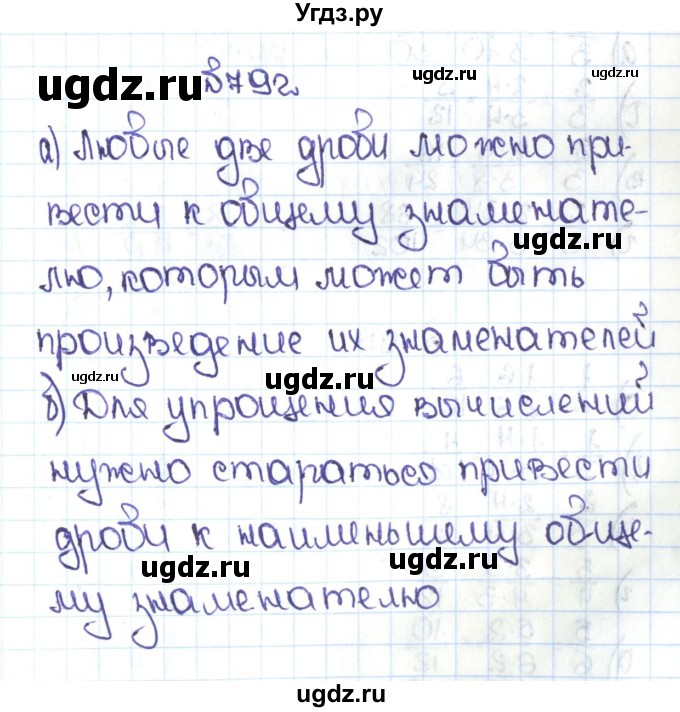 Угдз.ру
ugdz.ru №792. ugdz.ru ugdz.ru
а) Любые две дроби можно при-
вести к общему знаменате-
ugdz.ru
лю, которым может быть
произведение их знаменателей
ugdz.ru ugdz.ru
б) Для упрощения вычислений
нужно стараться привести
дроби к наименьшему обще-
ugdz.ru ugdz.ru
му знаменателю
ugdz.ru